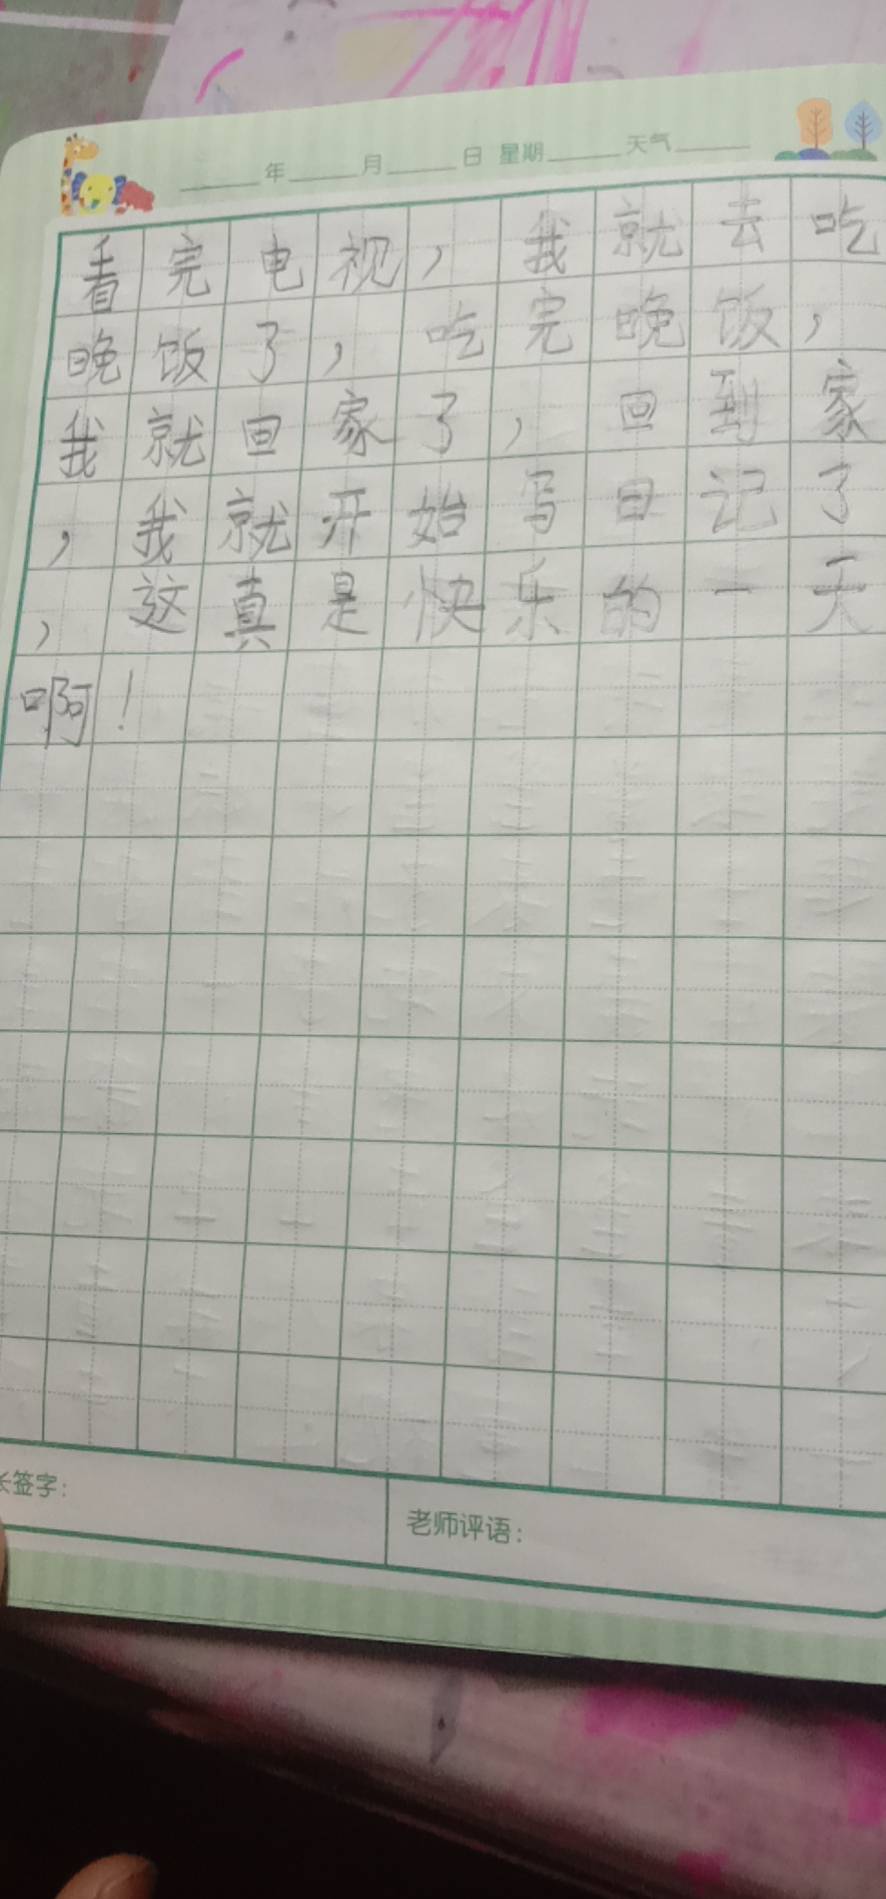 年 月 日 星期 天气
看完电视，我就去吃
晚饭了，吃完晚饭，
我就回家了，回到家
，我就开始写日记了
，这真是快乐的一天
啊！
长签字：
老师评语：